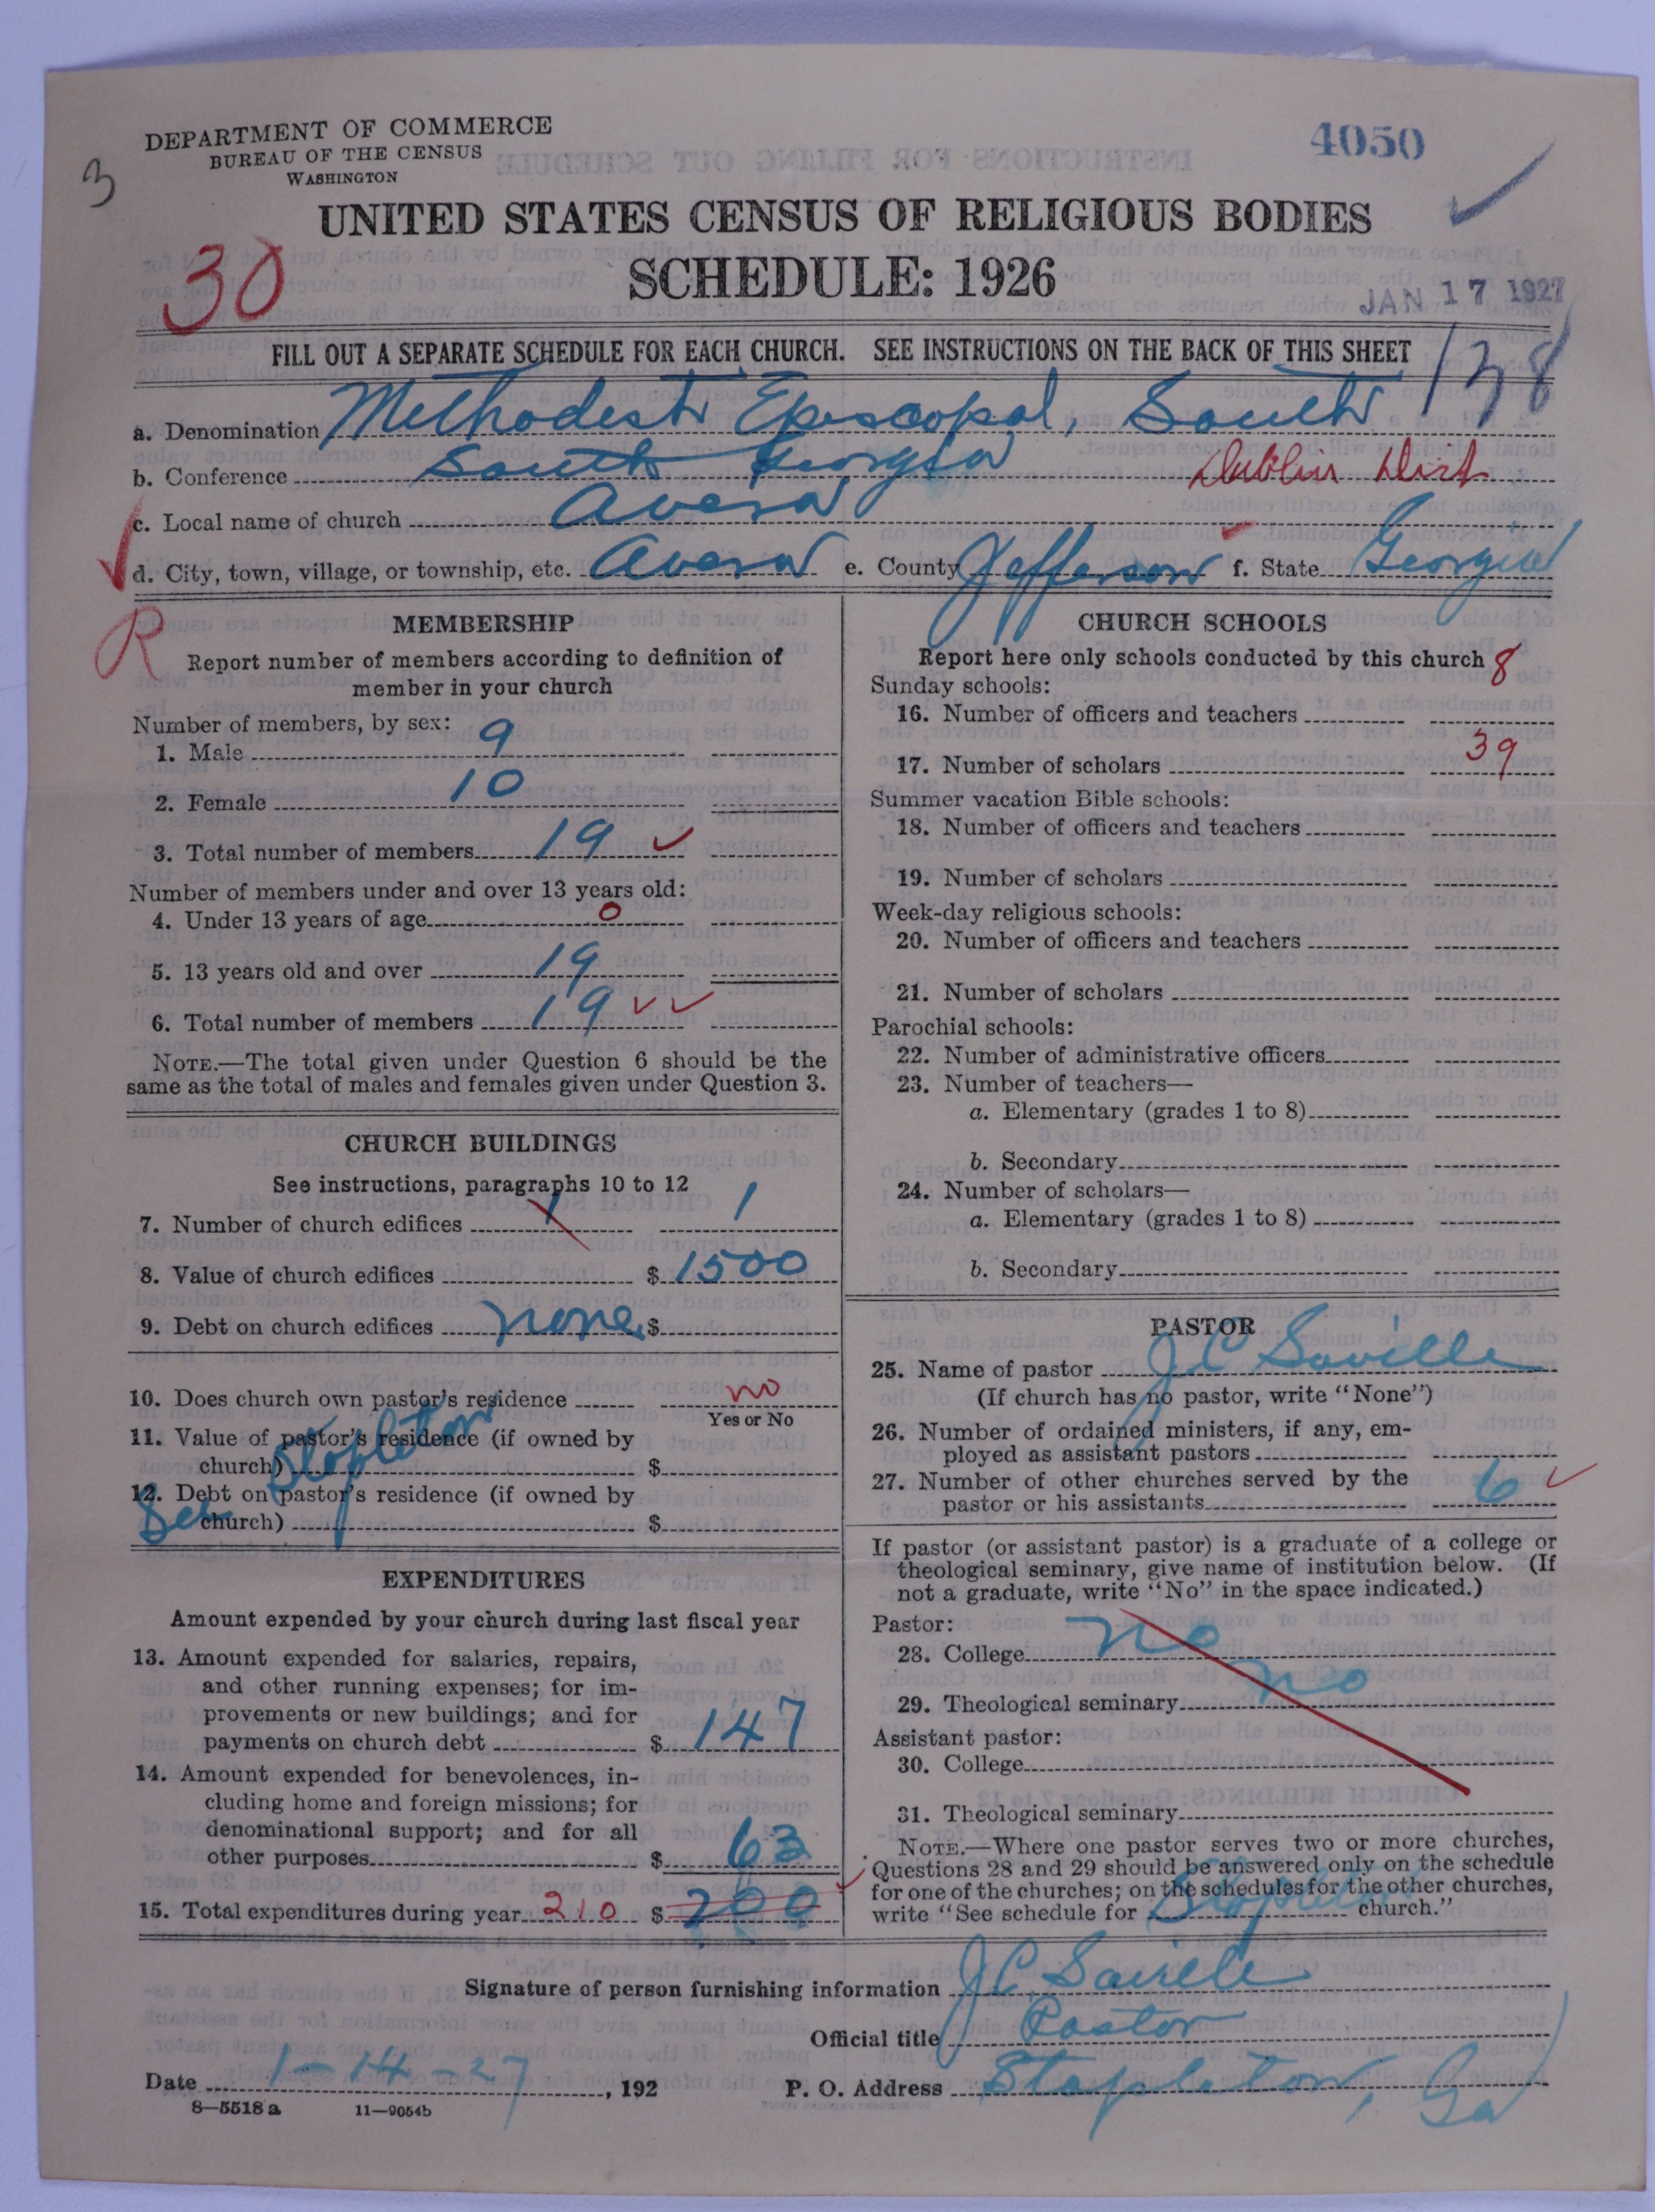 DEPARTMENT OF COMMERCE
BUREAU OF THE CENSUS
WASHINGTON
4050
3
UNITED STATES CENSUS OF RELIGIOUS BODIES
30
SCHEDULE: 1926
JAN 17 1927
FILL OUT A SEPARATE SCHEDULE FOR EACH CHURCH. SEE INSTRUCTIONS ON THE BACK OF THIS SHEET
138
a. Denomination Methodist Episcopal, South
b. Conference South Georgia Dublin Dist
c. Local name of church Avera
d. City, town, village, or township, etc. Avera e. County Jefferson f. State Georgia
R
MEMBERSHIP
Report number of members according to definition of
member in your church
Number of members, by sex:
1. Male 9
2. Female 10
3. Total number of members 19
Number of members under and over 13 years old:
4. Under 13 years of age 0
5. 13 years old and over 19
6. Total number of members 19
NOTE.—The total given under Question 6 should be the
same as the total of males and females given under Question 3.
CHURCH BUILDINGS
See instructions, paragraphs 10 to 12
7. Number of church edifices 1 1
8. Value of church edifices $ 1500
9. Debt on church edifices none $
10. Does church own pastor's residence no
Yes or No
11. Value of pastor's residence (if owned by
church) $
12. Debt on pastor's residence (if owned by
church) $
See Stapleton
EXPENDITURES
Amount expended by your church during last fiscal year
13. Amount expended for salaries, repairs,
and other running expenses; for im-
provements or new buildings; and for
payments on church debt $ 147
14. Amount expended for benevolences, in-
cluding home and foreign missions; for
denominational support; and for all
other purposes $ 63
15. Total expenditures during year 210 $ 200
CHURCH SCHOOLS
Report here only schools conducted by this church
Sunday schools:
16. Number of officers and teachers 8
17. Number of scholars 39
Summer vacation Bible schools:
18. Number of officers and teachers
19. Number of scholars
Week-day religious schools:
20. Number of officers and teachers
21. Number of scholars
Parochial schools:
22. Number of administrative officers
23. Number of teachers—
a. Elementary (grades 1 to 8)
b. Secondary
24. Number of scholars—
a. Elementary (grades 1 to 8)
b. Secondary
PASTOR
25. Name of pastor J C Saville
(If church has no pastor, write "None")
26. Number of ordained ministers, if any, em-
ployed as assistant pastors
27. Number of other churches served by the
pastor or his assistants 6
If pastor (or assistant pastor) is a graduate of a college or
theological seminary, give name of institution below. (If
not a graduate, write "No" in the space indicated.)
Pastor:
28. College No
29. Theological seminary No
Assistant pastor:
30. College
31. Theological seminary
NOTE.—Where one pastor serves two or more churches,
Questions 28 and 29 should be answered only on the schedule
for one of the churches; on the schedules for the other churches,
write "See schedule for Stapleton church."
Signature of person furnishing information J C Saville
Official title Pastor
Date 1-14-27, 192 P. O. Address Stapleton, Ga
8—5518 a 11—9054b